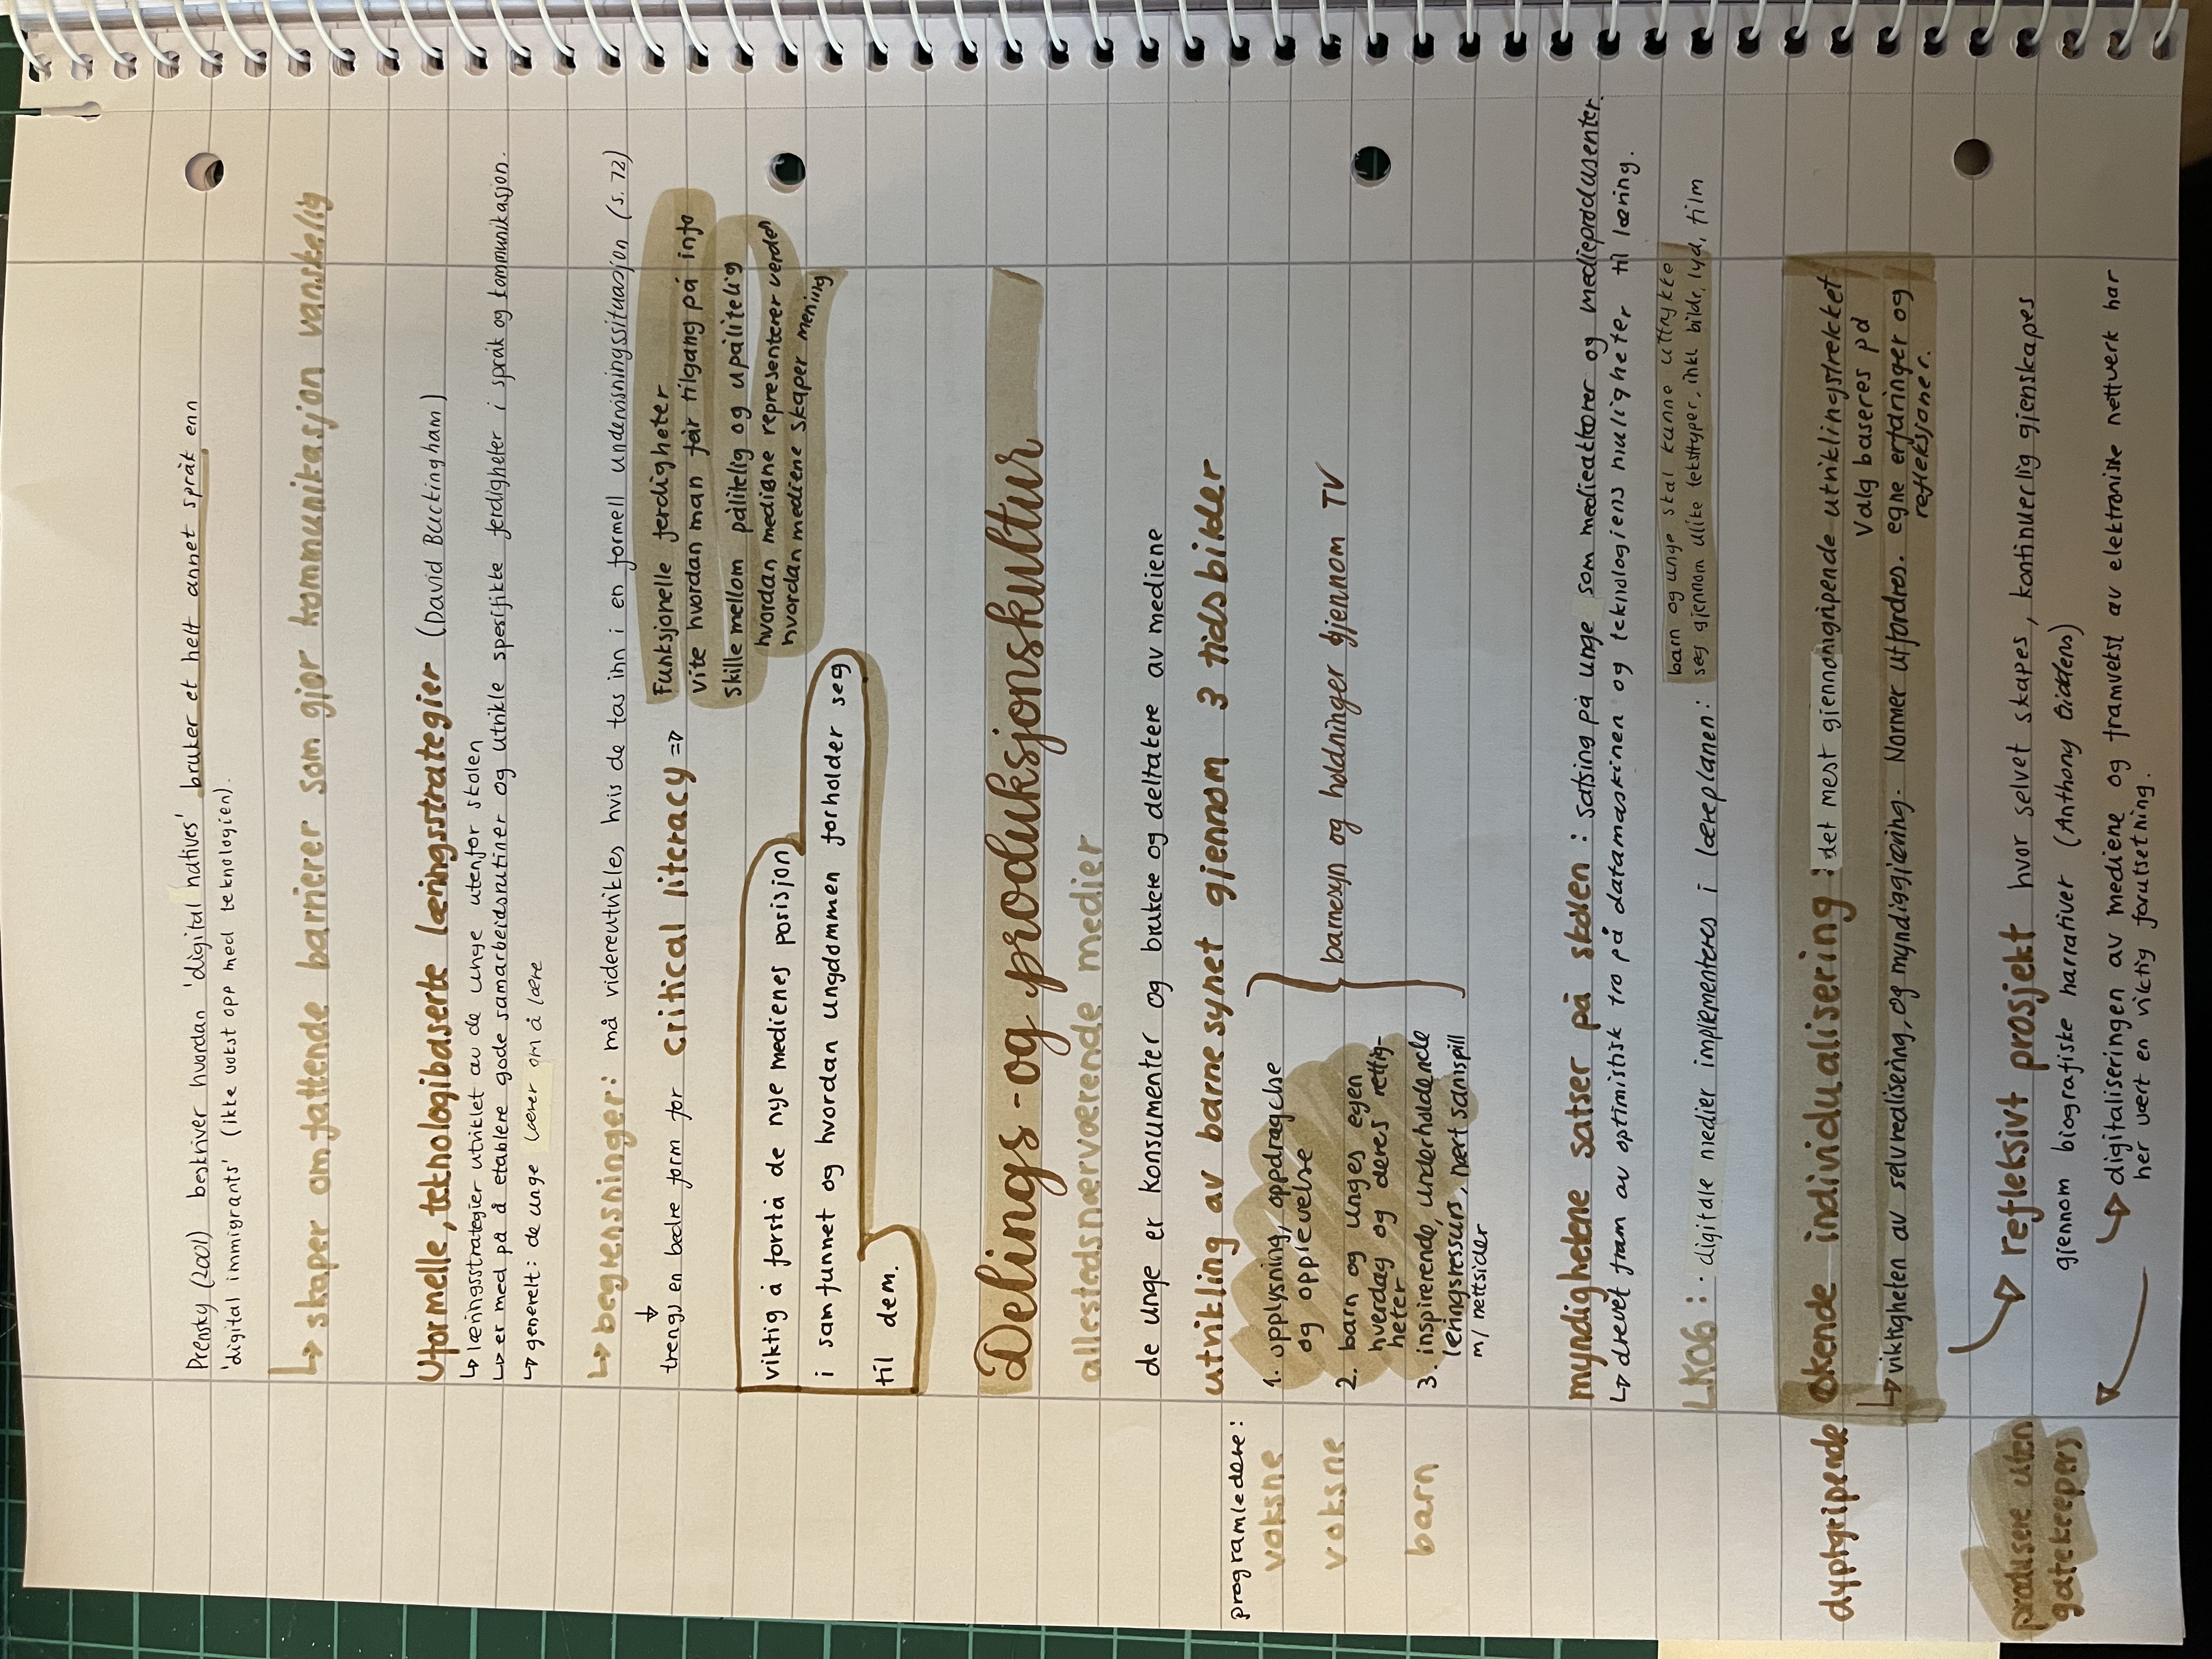 Prensky (2001) beskriver hvordan 'digital natives' bruker et helt annet språk enn
'digital immigrants' (ikke vokst opp med teknologien).
↳ skaper omfattende barrierer som gjør kommunikasjon vanskelig
Uformelle, teknologibaserte læringsstrategier (David Buckingham)
↳ læringsstrategier utviklet av de unge utenfor skolen
↳ er med på å etablere gode samarbeidsrutiner og utvikle spesifikke ferdigheter i språk og kommunikasjon.
↳ generelt: de unge lærer om å lære
↳ begrensninger: må videreutvikles hvis de tas inn i en formell undervisningssituasjon (s. 72)
↓
trengs en bedre form for critical literacy =>
Funksjonelle ferdigheter
vite hvordan man får tilgang på info
skille mellom pålitelig og upålitelig
hvordan mediene representerer verden
hvordan mediene skaper mening
viktig å forstå de nye medienes posisjon
i samfunnet og hvordan ungdommen forholder seg
til dem.
Delings- og produksjonskultur
allestedsnærværende medier
de unge er konsumenter og brukere og deltakere av mediene
utvikling av barnesynet gjennom 3 tidsbilder
programledere:
voksne
1. opplysning, oppdragelse
og opplevelse
voksne
2. barn og unges egen
hverdag og deres rettig-
heter
barn
3. inspirerende, underholdende
læringsressurs, nært samspill
m/ nettsider
} barnesyn og holdninger gjennom TV
myndighetene satser på skolen: satsing på unge som medieaktører og medieprodusenter.
↳ drevet fram av optimistisk tro på datamaskinen og teknologiens muligheter til læring.
LK06: digitale medier implementeres i læreplanen:
barn og unge skal kunne uttrykke
seg gjennom ulike teksttyper, inkl bilde, lyd, film
dyptgripende
økende individualisering: det mest gjennomgripende utviklingstrekket
↳ viktigheten av selvrealisering, og myndiggjøring. Normer utfordres.
Valg baseres på
egne erfaringer og
refleksjoner.
↳ refleksivt prosjekt hvor selvet skapes, kontinuerlig gjenskapes
gjennom biografiske narrativer (Anthony Giddens)
↳ digitaliseringen av mediene og framvekst av elektroniske nettverk har
her vært en viktig forutsetning.
produsere uten
gatekeepers